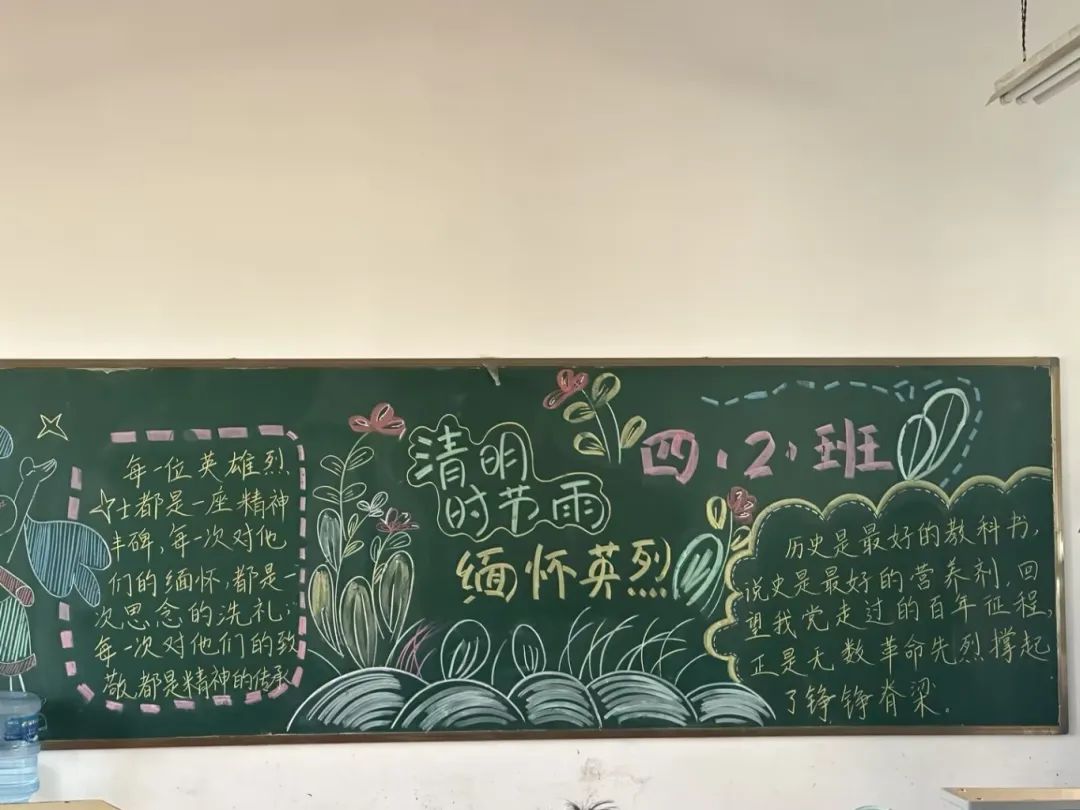 每一位英雄烈
士都是一座精神
丰碑,每一次对他
们的缅怀,都是一
次思念的洗礼;
每一次对他们的致
敬,都是精神的传承
清明
时节雨
缅怀英烈
四(2)班
历史是最好的教科书,
说史是最好的营养剂,回
望我党走过的百年征程,
正是无数革命先烈撑起
了铮铮脊梁。